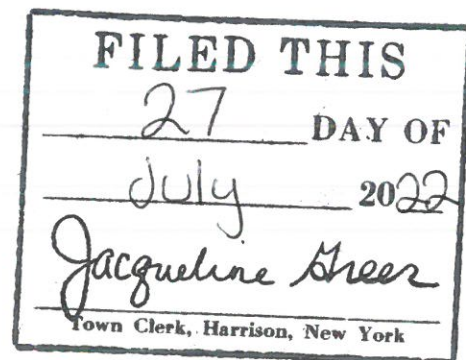 FILED THIS
27 DAY OF
July 2022
Jacqueline Greer
Town Clerk, Harrison, New York